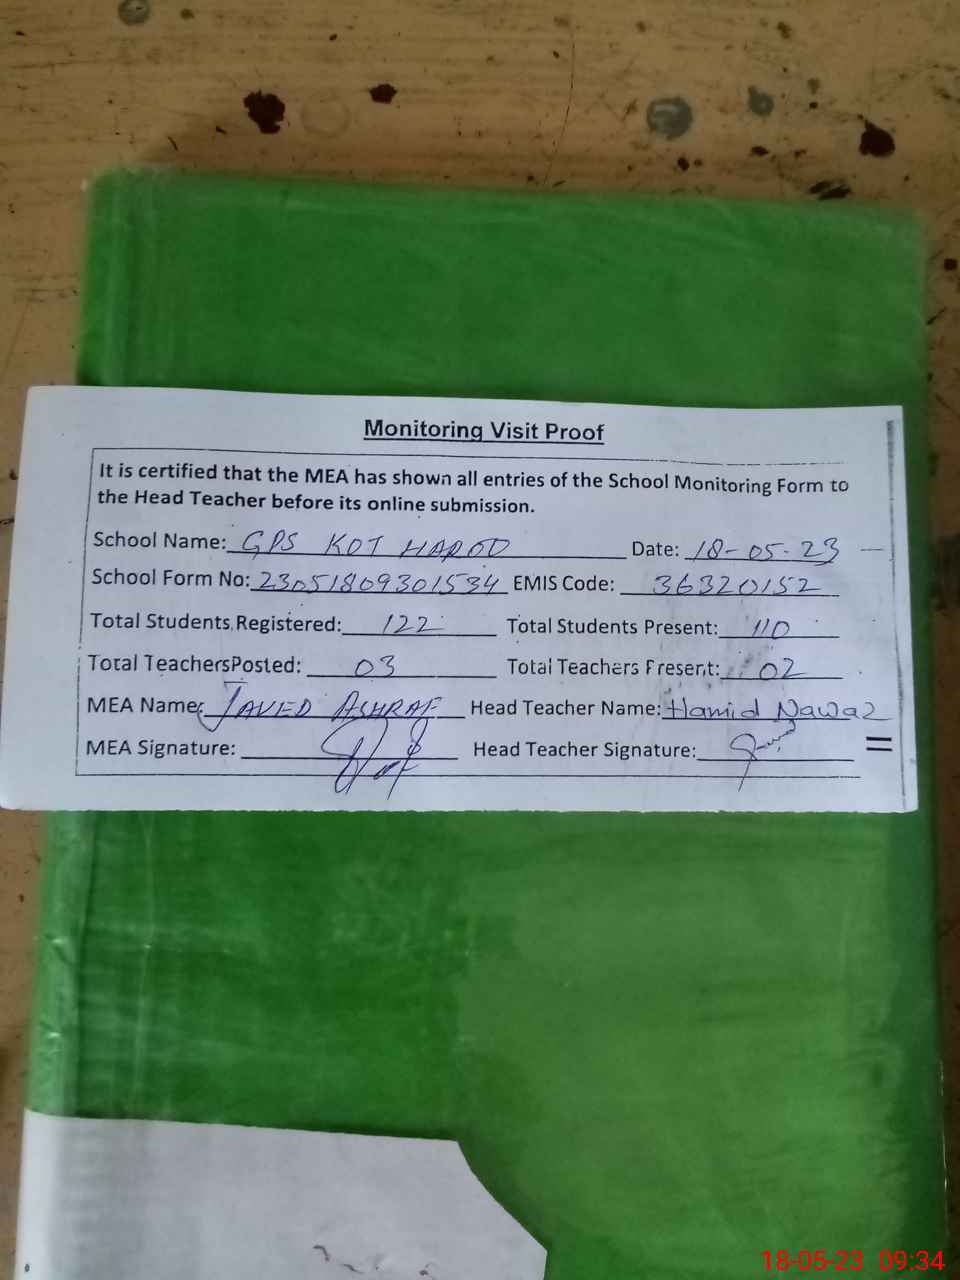 Monitoring Visit Proof
It is certified that the MEA has shown all entries of the School Monitoring Form to
the Head Teacher before its online submission.
School Name: GPS KOT HAROO Date: 18-05-23
School Form No: 23051809301534 EMIS Code: 36320152
Total Students Registered: 122 Total Students Present: 110
Total TeachersPosted: 03 Total Teachers Present: 02
MEA Name: JAVED ASHRAF Head Teacher Name: Hamid Nawaz
MEA Signature: Head Teacher Signature:
18-05-23 09:34